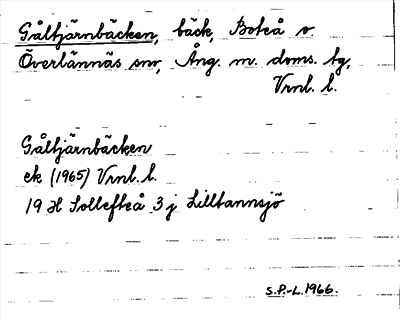 Gåltjärnbäcken, bäck, Boteå o.
Överlännäs snr, Ång. m. doms. tg,
Vrnl. l.
Gåltjärnbäcken
ek (1965) Vrnl. l.
19 H Sollefteå 3 j Lilltannsjö
S.P.-L. 1966.